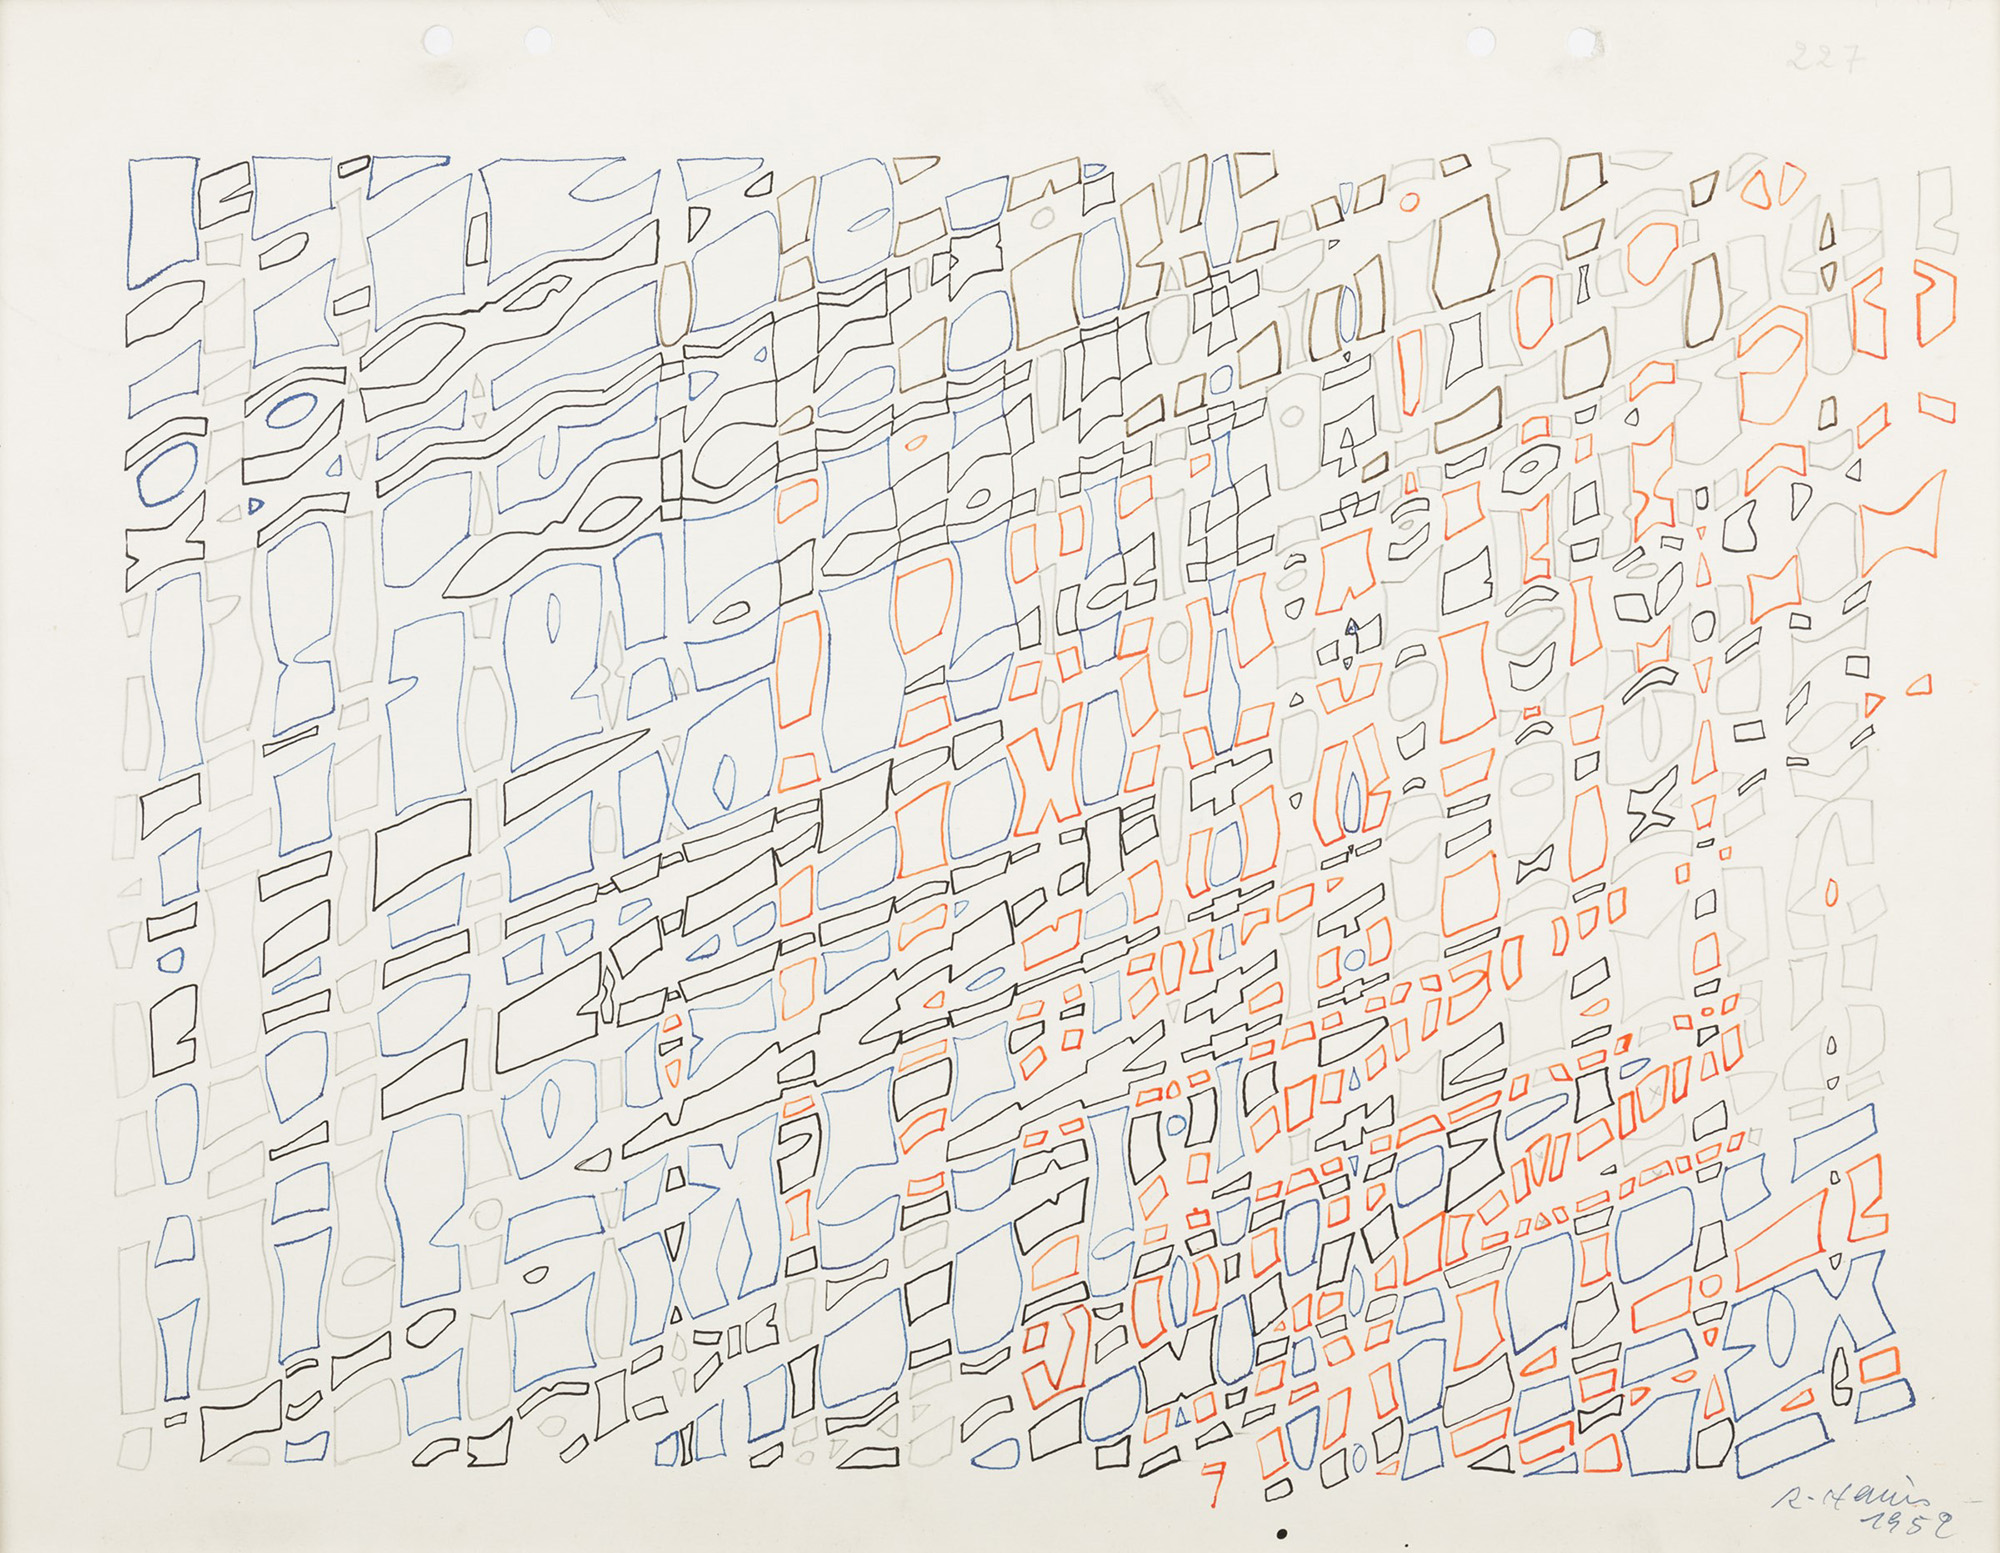 227
R. Hains
1952